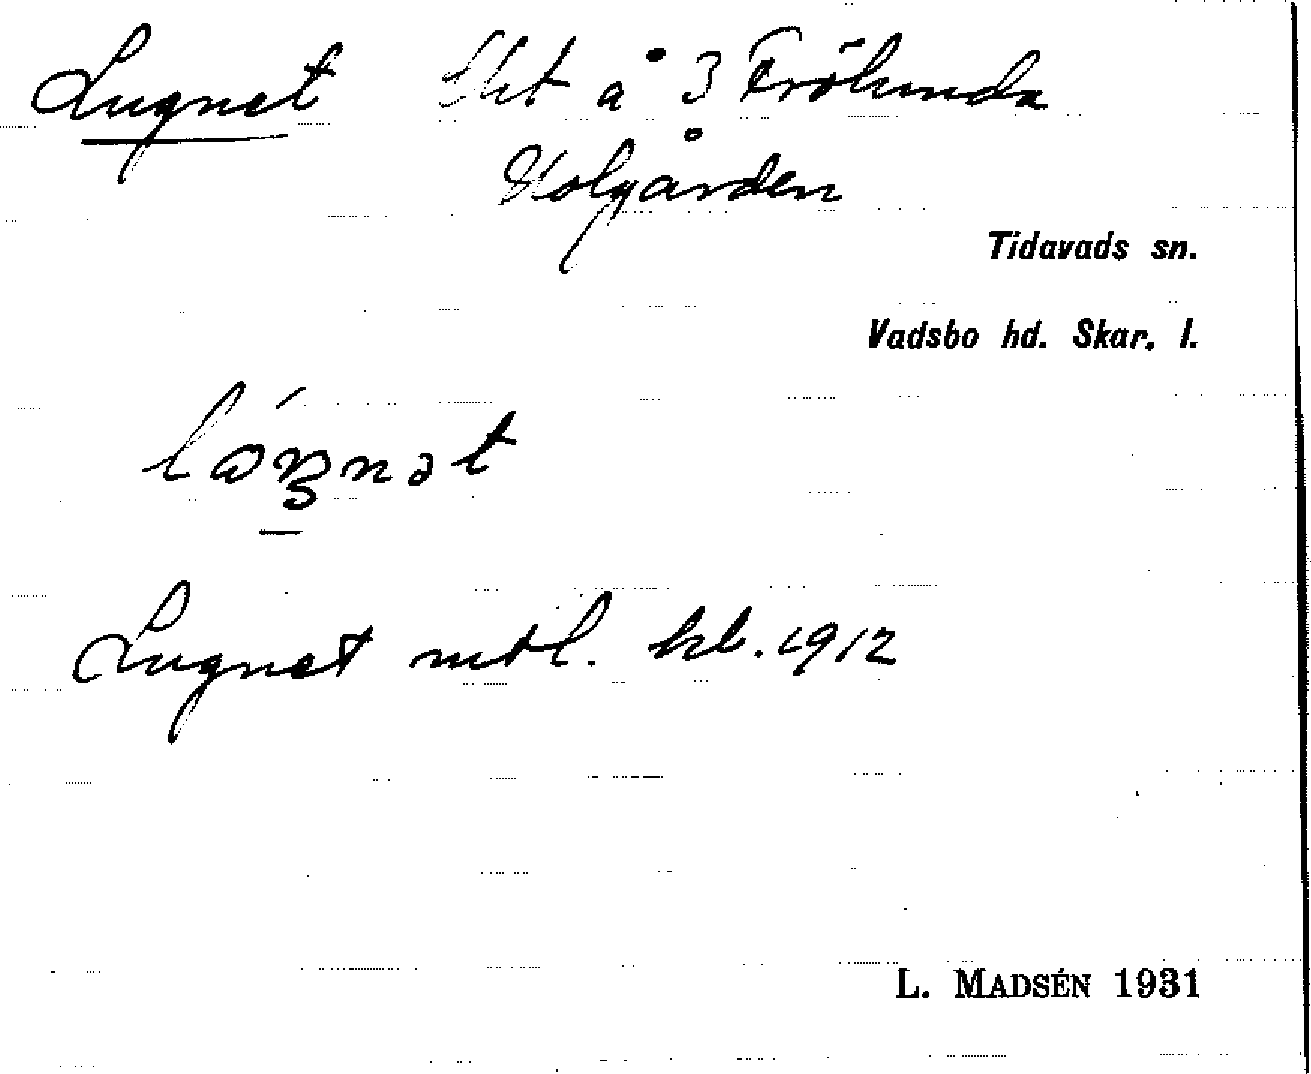 Lugnet lht å 3 Frölunda
Holgården
Tidavads sn.
Vadsbo hd. Skar. l.
Lugnet mtl. kl. 1912
L. MADSÉN 1931